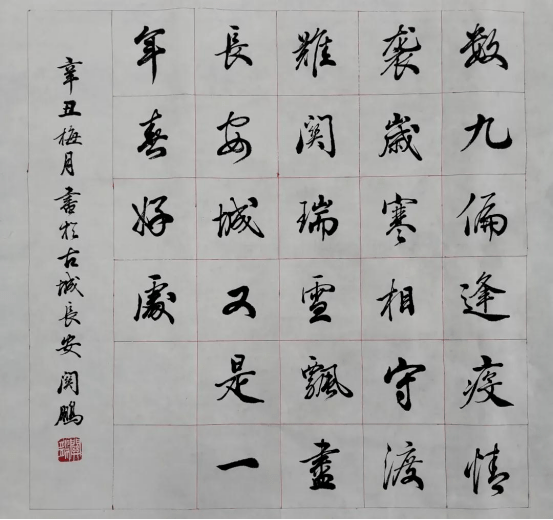 数九偏逢疫情
袭岁寒相守渡
難関瑞雪飄盡
長安城又是一
年春好處
辛丑梅月書於古城長安 関鵬